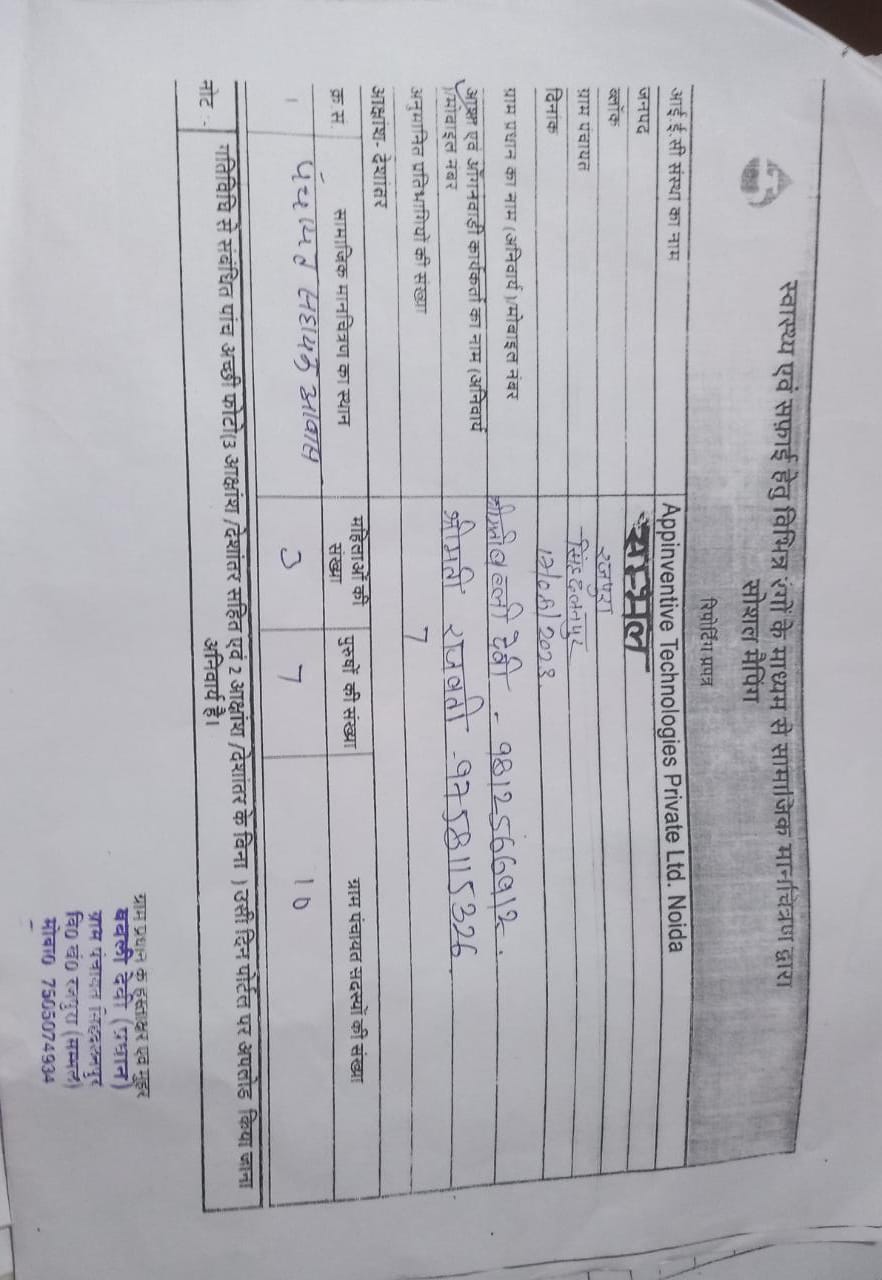 स्वास्थ्य एवं सफ़ाई हेतु विभिन्न रंगों के माध्यम से सामाजिक मानचित्रण द्वारा
सोशल मैपिंग
रिपोर्टिंग प्रपत्र
आई.ई.सी संस्था का नाम Appinventive Technologies Private Ltd. Noida
जनपद सम्भल
ब्लॉक रजपुरा
ग्राम पंचायत
दिनांक 17/06/2023
ग्राम प्रधान का नाम (अनिवार्य )/मोबाइल नंबर देवी - 9812566912
आशा एवं आँगनवाडी कार्यकर्ता का नाम (अनिवार्य
)/मोबाइल नंबर श्रीमती राजवती - 9758115326
अनुमानित प्रतिभागियों की संख्या 7
आक्षांश- देशांतर
क्र.स. सामाजिक मानचित्रण का स्थान महिलाओं की संख्या पुरुषों की संख्या ग्राम पंचायत सदस्यों की संख्या
1 3 7 10
नोट :- गतिविधि से संबंधित पांच अच्छी फोटो(3 आक्षांश /देशांतर सहित एवं 2 आक्षांश /देशांतर के बिना ) उसी दिन पोर्टल पर अपलोड किया जाना
अनिवार्य है।
ग्राम प्रधान के हस्ताक्षर एवं मुहर
बबली देवी (प्रधान)
ग्राम पंचायत
वि0 खं0 रजपुरा (सम्भल)
मोबा0 7505074934